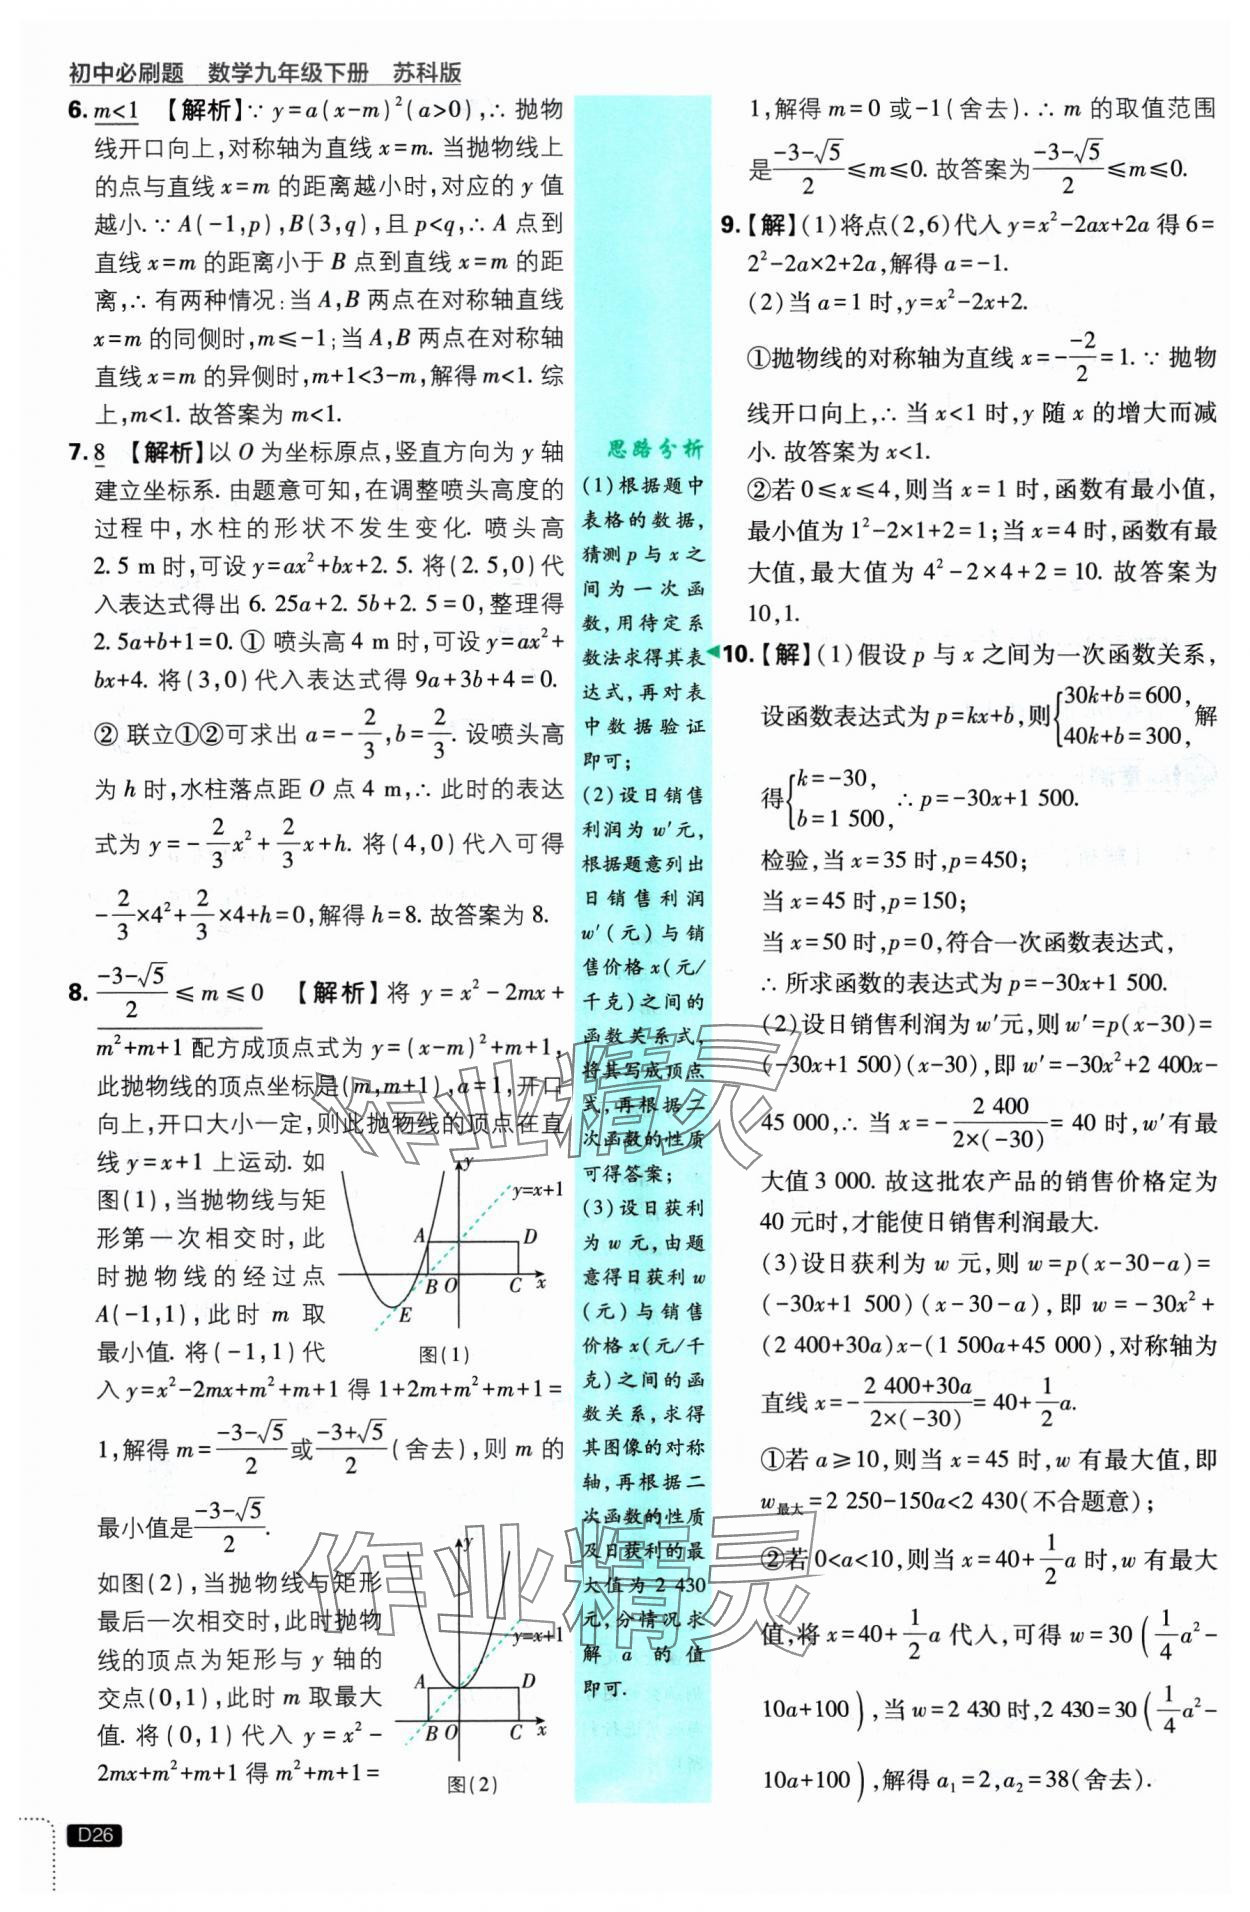 初中必刷题 数学九年级下册 苏科版
6. m<1 【解析】∵ y=a(x-m)²(a>0),∴ 抛物
线开口向上,对称轴为直线 x=m. 当抛物线上
的点与直线 x=m 的距离越小时,对应的 y 值
越小. ∵ A(-1,p),B(3,q),且 p<q,∴ A 点到
直线 x=m 的距离小于 B 点到直线 x=m 的距
离,∴ 有两种情况:当 A,B 两点在对称轴直线
x=m 的同侧时,m≤-1;当 A,B 两点在对称轴
直线 x=m 的异侧时,m+1<3-m,解得 m<1. 综
上,m<1. 故答案为 m<1.
7. 8 【解析】以 O 为坐标原点,竖直方向为 y 轴
建立坐标系. 由题意可知,在调整喷头高度的
过程中,水柱的形状不发生变化. 喷头高
2.5 m 时,可设 y=ax²+bx+2.5. 将(2.5,0)代
入表达式得出 6.25a+2.5b+2.5=0,整理得
2.5a+b+1=0. ① 喷头高 4 m 时,可设 y=ax²+
bx+4. 将(3,0)代入表达式得 9a+3b+4=0.
② 联立①②可求出 a=-2/3,b=2/3. 设喷头高
为 h 时,水柱落点距 O 点 4 m,∴ 此时的表达
式为 y=-2/3x²+2/3x+h. 将(4,0)代入可得
-2/3×4²+2/3×4+h=0,解得 h=8. 故答案为 8.
8. (-3-√5)/2≤m≤0 【解析】将 y=x²-2mx+
m²+m+1 配方成顶点式为 y=(x-m)²+m+1,
此抛物线的顶点坐标是(m,m+1),a=1,开口
向上,开口大小一定,则此抛物线的顶点在直
线 y=x+1 上运动. 如
图(1),当抛物线与矩
形第一次相交时,此
时抛物线的经过点
A(-1,1),此时 m 取
最小值. 将(-1,1)代
y
y=x+1
A
D
B
O
C
x
E
图(1)
入 y=x²-2mx+m²+m+1 得 1+2m+m²+m+1=
1,解得 m=(-3-√5)/2或(-3+√5)/2(舍去),则 m 的
最小值是(-3-√5)/2.
如图(2),当抛物线与矩形
最后一次相交时,此时抛物
线的顶点为矩形与 y 轴的
交点(0,1),此时 m 取最大
值. 将(0,1)代入 y=x²-
2mx+m²+m+1 得 m²+m+1=
y
y=x+1
A
D
B
O
C
x
图(2)
思路分析
(1)根据题中
表格的数据,
猜测 p 与 x 之
间为一次函
数,用待定系
数法求得其表
达式,再对表
中数据验证
即可;
(2)设日销售
利润为 w′元,
根据题意列出
日销售利润
w′(元)与销
售价格 x(元/
千克)之间的
函数关系式,
将其写成顶点
式,再根据二
次函数的性质
可得答案;
(3)设日获利
为 w 元,由题
意得日获利 w
(元)与销售
价格 x(元/千
克)之间的函
数关系,求得
其图像的对称
轴,再根据二
次函数的性质
及日获利的最
大值为 2 430
元,分情况求
解 a 的值
即可.
1,解得 m=0 或-1(舍去). ∴ m 的取值范围
是(-3-√5)/2≤m≤0. 故答案为(-3-√5)/2≤m≤0.
9.【解】(1)将点(2,6)代入 y=x²-2ax+2a 得 6=
2²-2a×2+2a,解得 a=-1.
(2)当 a=1 时,y=x²-2x+2.
①抛物线的对称轴为直线 x=--2/2=1. ∵ 抛物
线开口向上,∴ 当 x<1 时,y 随 x 的增大而减
小. 故答案为 x<1.
②若 0≤x≤4,则当 x=1 时,函数有最小值,
最小值为 1²-2×1+2=1;当 x=4 时,函数有最
大值,最大值为 4²-2×4+2=10. 故答案为
10,1.
10.【解】(1)假设 p 与 x 之间为一次函数关系,
设函数表达式为 p=kx+b,则{30k+b=600, 40k+b=300,解
得{k=-30, b=1 500, ∴ p=-30x+1 500.
检验,当 x=35 时,p=450;
当 x=45 时,p=150;
当 x=50 时,p=0,符合一次函数表达式,
∴ 所求函数的表达式为 p=-30x+1 500.
(2)设日销售利润为 w′元,则 w′=p(x-30)=
(-30x+1 500)(x-30),即 w′=-30x²+2 400x-
45 000,∴ 当 x=-2 400/(2×(-30))=40 时,w′有最
大值 3 000. 故这批农产品的销售价格定为
40 元时,才能使日销售利润最大.
(3)设日获利为 w 元,则 w=p(x-30-a)=
(-30x+1 500)(x-30-a),即 w=-30x²+
(2 400+30a)x-(1 500a+45 000),对称轴为
直线 x=-(2 400+30a)/(2×(-30))=40+1/2a.
①若 a≥10,则当 x=45 时,w 有最大值,即
w最大=2 250-150a<2 430(不合题意);
②若 0<a<10,则当 x=40+1/2a 时,w 有最大
值,将 x=40+1/2a 代入,可得 w=30(1/4a²-
10a+100),当 w=2 430 时,2 430=30(1/4a²-
10a+100),解得 a₁=2,a₂=38(舍去).
D26
作业精灵
作业精灵